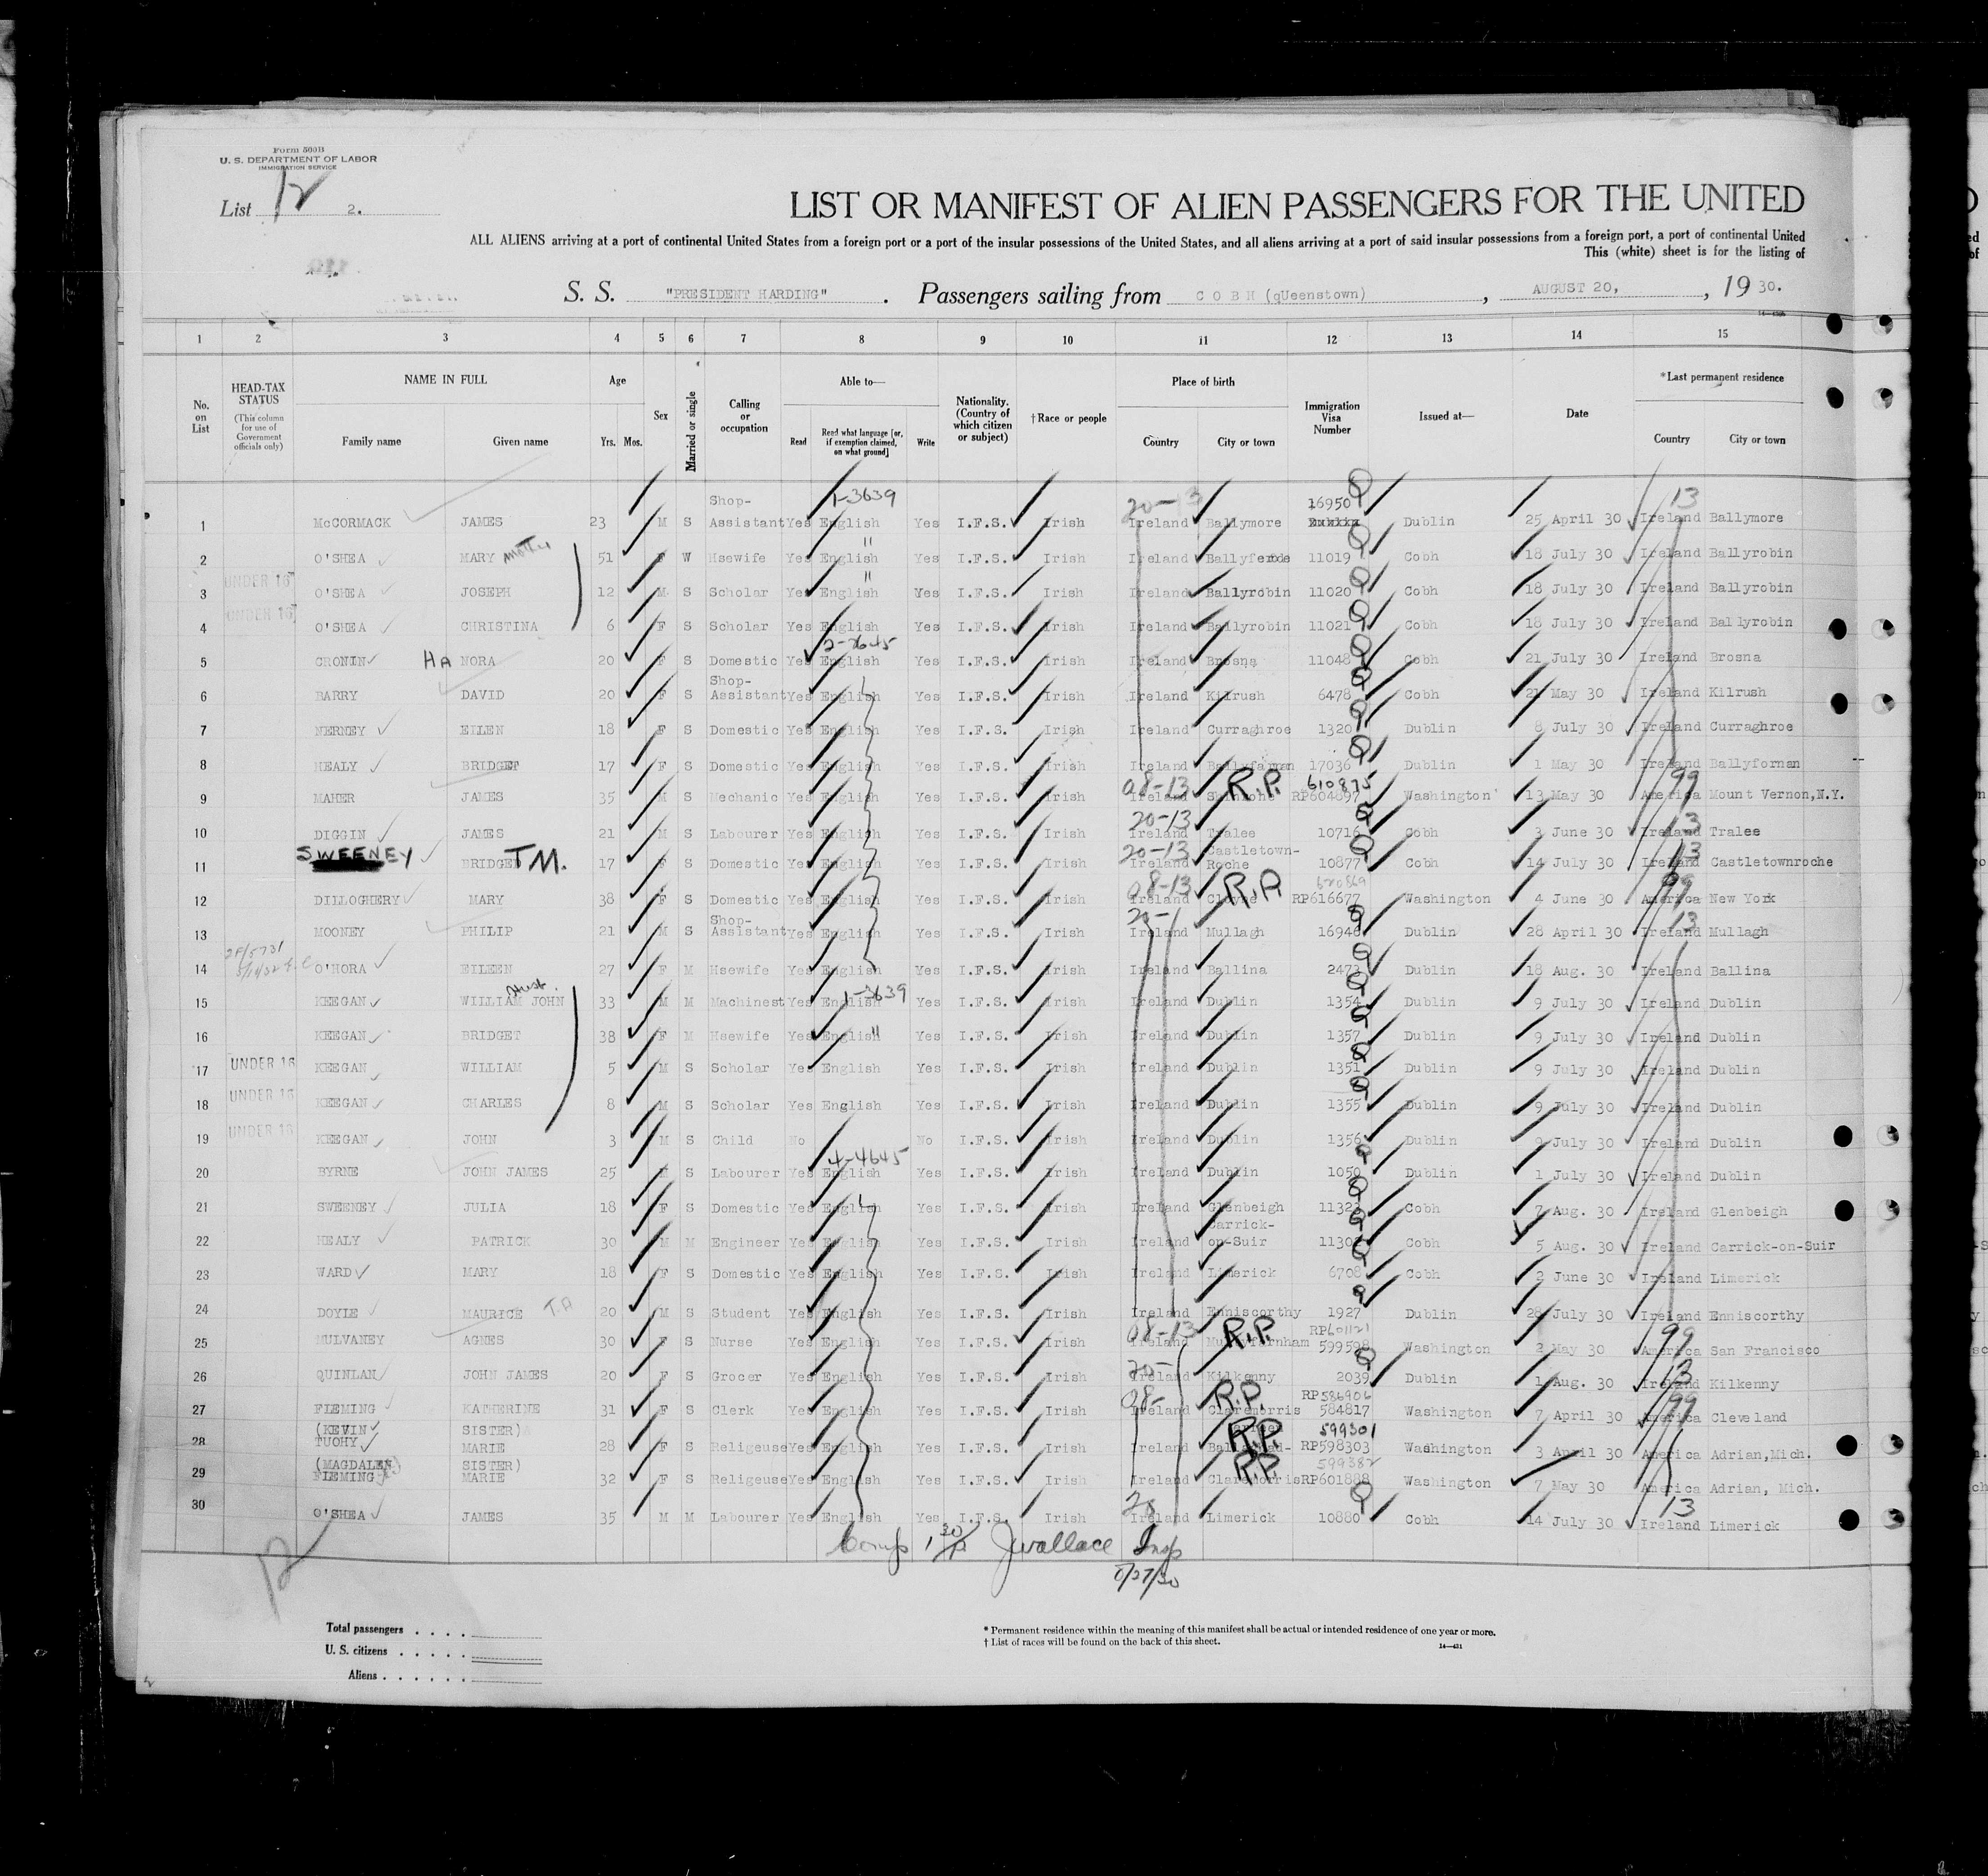 Form 500B
U. S. DEPARTMENT OF LABOR
IMMIGRATION SERVICE
List 12 2.
LIST OR MANIFEST OF ALIEN PASSENGERS FOR THE UNITED
ALL ALIENS arriving at a port of continental United States from a foreign port or a port of the insular possessions of the United States, and all aliens arriving at a port of said insular possessions from a foreign port, a port of continental United
This (white) sheet is for the listing of
S. S. "PRESIDENT HARDING" . Passengers sailing from C O B H (qUeenstown) , AUGUST 20, , 19 30.
1 2 3 4 5 6 7 8 9 10 11 12 13 14 15
No. on List HEAD-TAX STATUS (This column for use of Government officials only) NAME IN FULL Family name Given name Age Yrs. Mos. Sex Married or single Calling or occupation Able to— Read Read what language [or, if exemption claimed, on what ground] Write Nationality. (Country of which citizen or subject) †Race or people Place of birth Country City or town Immigration Visa Number Issued at— Date *Last permanent residence Country City or town
Shop- 1-3639 20-13 16950 13
1 McCORMACK JAMES 23 M S Assistant Yes English Yes I.F.S. Irish Ireland Ballymore Dublin 25 April 30 Ireland Ballymore
2 O'SHEA MARY Mother 51 F W Hsewife Yes English " Yes I.F.S. Irish Ireland 11019 Cobh 18 July 30 Ireland Ballyrobin
3 UNDER 16 O'SHEA JOSEPH 12 M S Scholar Yes English " Yes I.F.S. Irish Ireland Ballyrobin 11020 Cobh 18 July 30 Ireland Ballyrobin
4 UNDER 16 O'SHEA CHRISTINA 6 F S Scholar Yes English Yes I.F.S. Irish Ireland Ballyrobin 11021 Cobh 18 July 30 Ireland Ballyrobin
2-2645
5 CRONIN HA NORA 20 F S Domestic Yes English Yes I.F.S. Irish Ireland Brosna 11048 Cobh 21 July 30 Ireland Brosna
Shop-
6 BARRY DAVID 20 F S Assistant Yes English Yes I.F.S. Irish Ireland Kilrush 6478 Cobh 21 May 30 Ireland Kilrush
7 NERNEY EILEN 18 F S Domestic Yes English Yes I.F.S. Irish Ireland Curraghroe 1320 Dublin 8 July 30 Ireland Curraghroe
8 HEALY BRIDGET 17 F S Domestic Yes English Yes I.F.S. Irish Ireland Ballyfarnan 17036 Dublin 1 May 30 Ireland Ballyfornan
08-13 R.P. 610875 99
9 MAHER JAMES 35 M S Mechanic Yes English Yes I.F.S. Irish Ireland RP604897 Washington 13 May 30 America Mount Vernon,N.Y.
20-13 13
10 DIGGIN JAMES 21 M S Labourer Yes English Yes I.F.S. Irish Ireland Tralee 10716 Cobh 3 June 30 Ireland Tralee
SWEENEY T.M. 20-13 Castletown- 13
11 BRIDGET 17 F S Domestic Yes English Yes I.F.S. Irish Ireland Roche 10877 Cobh 14 July 30 Ireland Castletownroche
08-13 R.P. 620869 99
12 DILLOGHERY MARY 38 F S Domestic Yes English Yes I.F.S. Irish Ireland RP616677 Washington 4 June 30 America New York
Shop- 20-1 13
13 MOONEY PHILIP 21 M S Assistant Yes English Yes I.F.S. Irish Ireland Mullagh 16946 Dublin 28 April 30 Ireland Mullagh
14 O'HORA EILEEN 27 F M Hsewife Yes English Yes I.F.S. Irish Ireland Ballina 2473 Dublin 18 Aug. 30 Ireland Ballina
Hust. 1-3639
15 KEEGAN WILLIAM JOHN 33 M M Machinest Yes English Yes I.F.S. Irish Ireland Dublin 1354 Dublin 9 July 30 Ireland Dublin
16 KEEGAN BRIDGET 38 F M Hsewife Yes English " Yes I.F.S. Irish Ireland Dublin 1357 Dublin 9 July 30 Ireland Dublin
17 UNDER 16 KEEGAN WILLIAM 5 M S Scholar Yes English Yes I.F.S. Irish Ireland Dublin 1351 Dublin 9 July 30 Ireland Dublin
18 UNDER 16 KEEGAN CHARLES 8 M S Scholar Yes English Yes I.F.S. Irish Ireland Dublin 1355 Dublin 9 July 30 Ireland Dublin
19 UNDER 16 KEEGAN JOHN 3 M S Child No No I.F.S. Irish Ireland Dublin 1356 Dublin 9 July 30 Ireland Dublin
4-4645
20 BYRNE JOHN JAMES 25 M S Labourer Yes English Yes I.F.S. Irish Ireland Dublin 1050 Dublin 1 July 30 Ireland Dublin
21 SWEENEY JULIA 18 F S Domestic Yes English Yes I.F.S. Irish Ireland Glenbeigh 11323 Cobh 7 Aug. 30 Ireland Glenbeigh
Carrick-
22 HEALY PATRICK 30 M M Engineer Yes English Yes I.F.S. Irish Ireland on-Suir 11302 Cobh 5 Aug. 30 Ireland Carrick-on-Suir
23 WARD MARY 18 F S Domestic Yes English Yes I.F.S. Irish Ireland Limerick 6708 Cobh 2 June 30 Ireland Limerick
24 DOYLE MAURICE T.A 20 M S Student Yes English Yes I.F.S. Irish Ireland Enniscorthy 1927 Dublin 28 July 30 Ireland Enniscorthy
08-13 R.P. RP601121 99
25 MULVANEY AGNES 30 F S Nurse Yes English Yes I.F.S. Irish Ireland 599598 Washington 2 May 30 America San Francisco
20- 13
26 QUINLAN JOHN JAMES 20 F S Grocer Yes English Yes I.F.S. Irish Ireland Kilkenny 2039 Dublin 1 Aug. 30 Ireland Kilkenny
08- R.P. RP586906 99
27 FLEMING KATHERINE 31 F S Clerk Yes English Yes I.F.S. Irish Ireland Claremorris 584817 Washington 7 April 30 America Cleveland
(KEVIN SISTER) R.P. 599301
28 TUOHY MARIE 28 F S Religeuse Yes English Yes I.F.S. Irish Ireland RP598303 Washington 3 April 30 America Adrian,Mich.
(MAGDALEN SISTER) R.P. 599382
29 FLEMING MARIE 32 F S Religeuse Yes English Yes I.F.S. Irish Ireland Claremorris RP601888 Washington 7 May 30 America Adrian, Mich.
20 13
30 O'SHEA JAMES 35 M M Labourer Yes English Yes I.F.S. Irish Ireland Limerick 10880 Cobh 14 July 30 Ireland Limerick
J Wallace Insp
8/27/30
12
Total passengers . . . .
U. S. citizens . . . . .
Aliens . . . . . .
* Permanent residence within the meaning of this manifest shall be actual or intended residence of one year or more.
† List of races will be found on the back of this sheet.
14—431